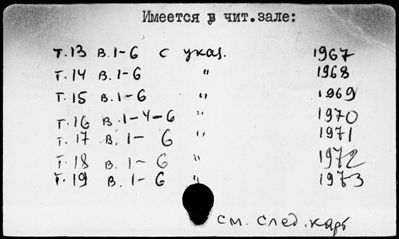 Имеется в чит.зале:
т.13 в.1-6 с указ. 1967
т.14 в.1-6 " 1968
т.15 в.1-6 " 1969
т.16 в.1-4-6 " 1970
т.17 в.1- 6 " 1971
т.18 в.1- 6 " 1972
т.19 в.1- 6 " 1973
см. след. карт